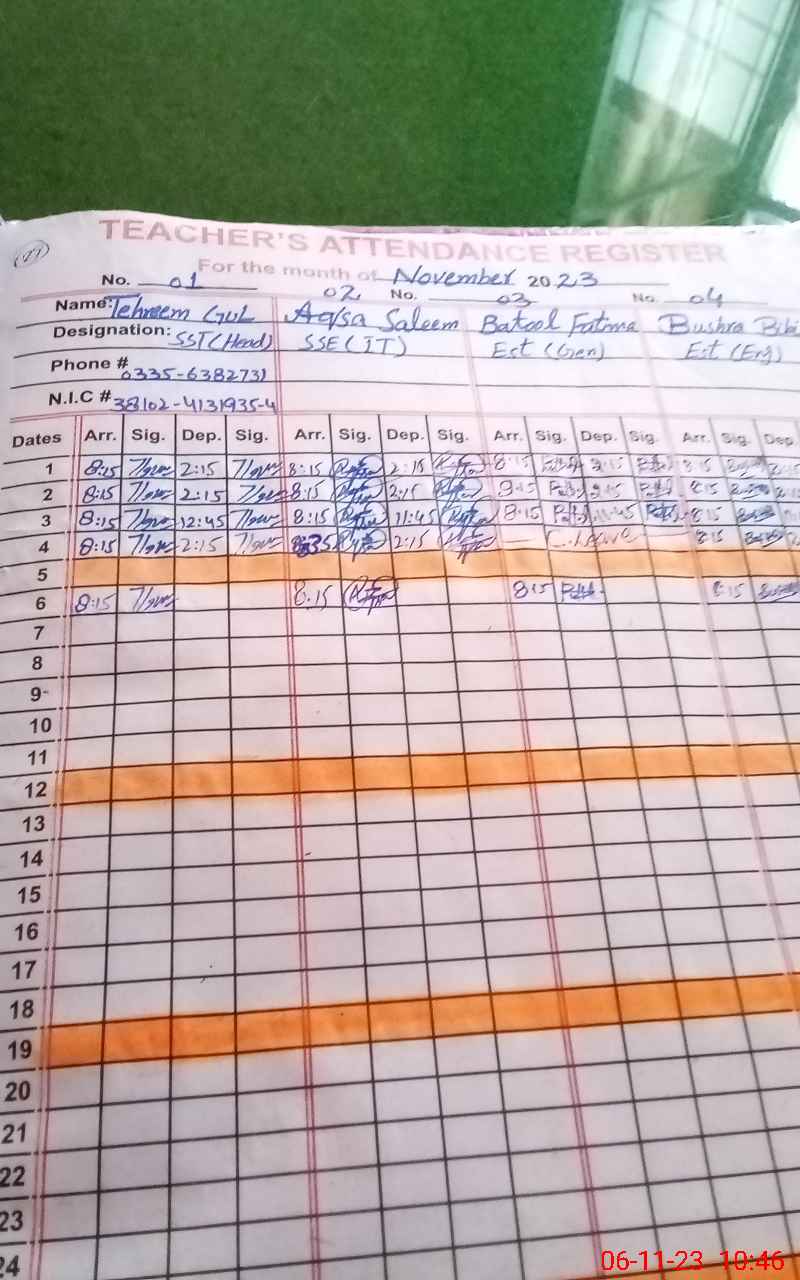 (27)
TEACHER'S ATTENDANCE REGISTER
For the month of November 2023
No. 01 02 No. 03 No. 04
Name: Tehreem Gul Aqsa Saleem Batool Fatima Bushra Bibi
Designation: SST(Head) SSE(IT) Est (Gen) Est (Eng)
Phone # 0335-6382731
N.I.C # 38102-4131935-4
Dates Arr. Sig. Dep. Sig. Arr. Sig. Dep. Sig. Arr. Sig. Dep. Sig. Arr. Sig. Dep
1 8:15 2:15 8:15 2:15 8:15 2:15 8:15
2 8:15 2:15 8:15 2:15 8:15
3 8:15 12:45 8:15 11:45 8:15 11:45 8:15
4 8:15 2:15 2:15 C.Leave 8:15
5
6 8:15 8:15 8:15 8:15
7
8
9
10
11
12
13
14
15
16
17
18
19
20
21
22
23
24
06-11-23 10:46